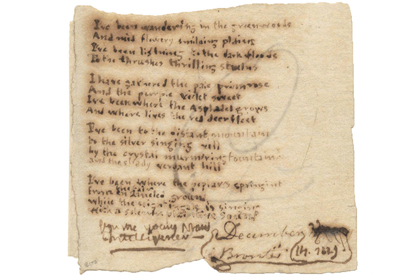 I've been wandering in the greenwoods
And mid flowery smiling plains
I've been listning to the dark floods
To the thrushes thrilling strains

I have gathered the pale primrose
And the purple violet sweet
I've been where the Asphodel grows
And where lives the red deer fleet

I've been to the distant mountain
To the silver singing rill
by the crystal murmering fountain
and the shady verdant hill

I've been where the poplar is springing
from the
while the nightingale is singing
with a

December
Bronte
14. 1829